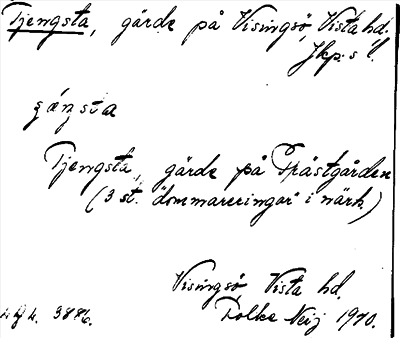 Tjengsta, gärde på Visingsö, Vista hd.
Jkp:s l.
Tjengsta, gärde på Prästgården
(3 st. "domareringar" i närh.)
Visingsö Vista hd.
Folke Neij 1970.